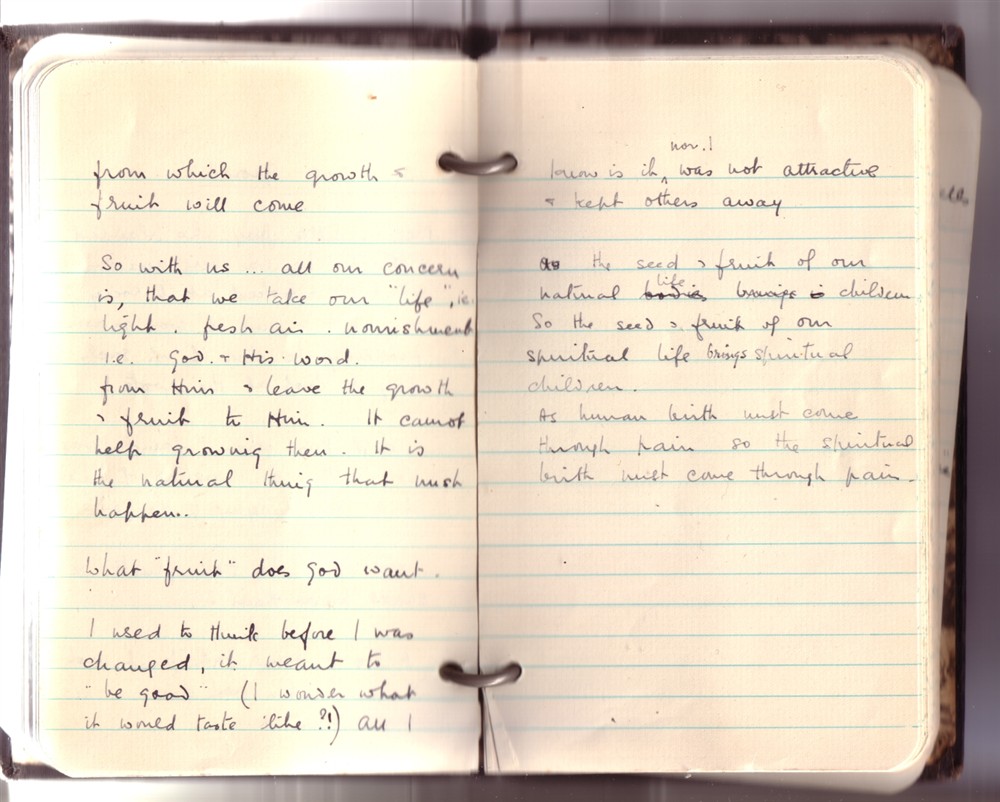 from which the growth &
fruit will come
So with us ... all our concern
is, that we take our "life", i.e.
light . fresh air . nourishment
i.e. God. + His word.
from Him & leave the growth
& fruit to Him. It cannot
help growing then. It is
the natural thing that must
happen..
What "fruit" does God want.
I used to think before I was
changed, it meant to
"be good" (I wonder what
it would taste like ?!) all I
know is it, was not attractive
nor. I
& kept others away
as the seed & fruit of our
natural bodies life brings children
So the seed & fruit of our
spiritual life brings spiritual
children.
As human birth must come
through pain so the spiritual
birth must come through pain.